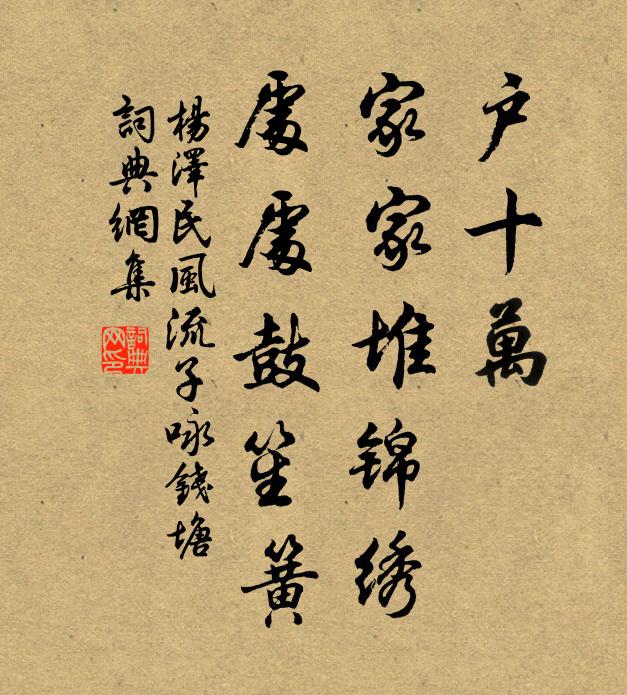 户十萬
家家堆锦绣
處處鼓笙簧
楊澤民風流子咏錢塘
詞典網集
詞典
网印